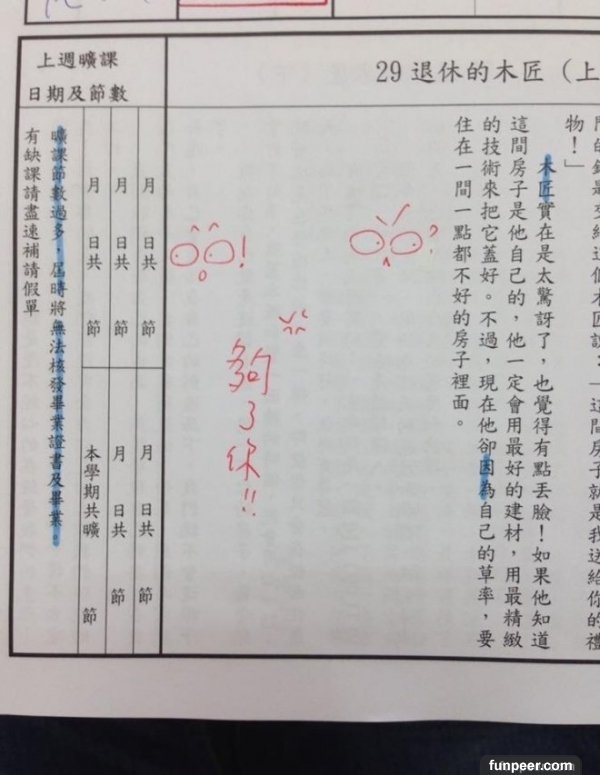 29 退休的木匠（上
門的鑰匙交給這個木匠說：「這間房子就是我送給你的禮
物！」
木匠實在是太驚訝了，也覺得有點丟臉！如果他知道
這間房子是他自己的，他一定會用最好的建材，用最精緻
的技術來把它蓋好。不過，現在他卻因為自己的草率，要
住在一間一點都不好的房子裡面。
?
!
夠了你!!
上週曠課
日期及節數
月 日共 節
月 日共 節
月 日共 節
月 日共 節
月 日共 節
本學期共曠 節
曠課節數過多，屆時將無法核發畢業證書及畢業。
有缺課請盡速補請假單
funpeer.com